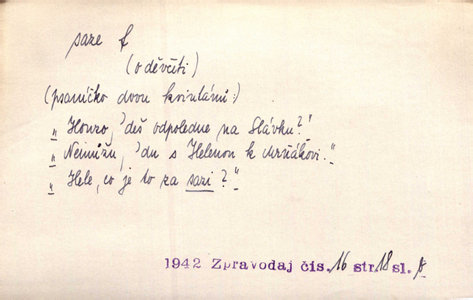 saze f
(o děvčeti)
(psaníčko dvou kvintánů:)
"Honzo, 'deš odpoledne na Slávku?"
"Nemůžu, 'du s Helenou k Mrňákovi."
"Hele, co je to za sazi?"
1942 Zpravodaj čís. 16 str. 18 sl.